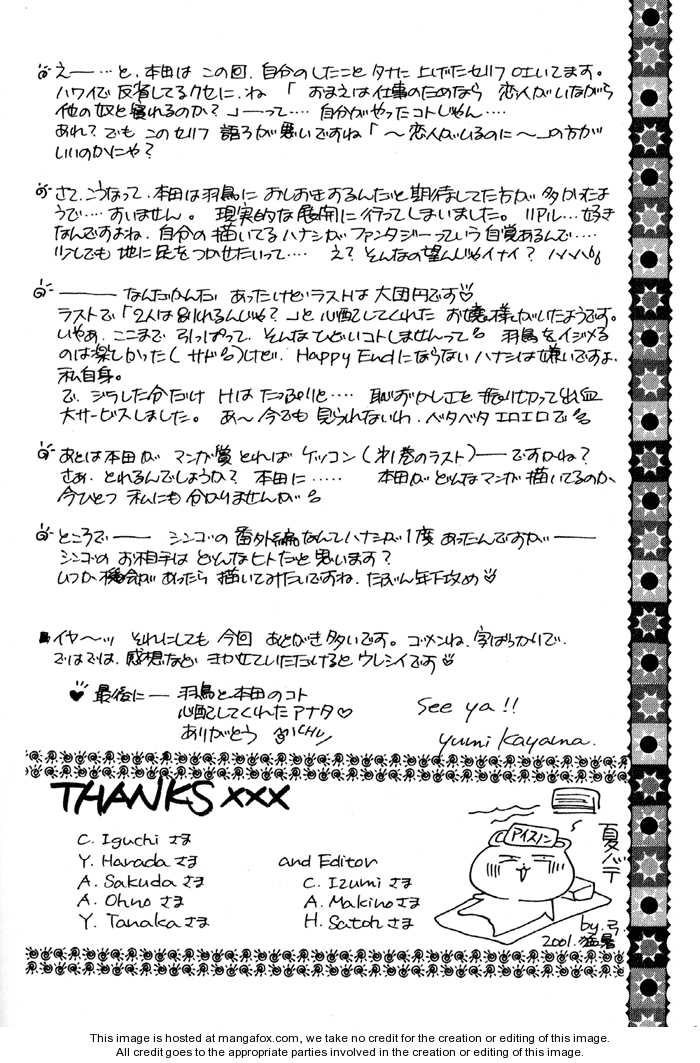 えー…と、本田は この回、自分のしたこと タナに 上げたセリフ 吐いてます。
ハワイで 反省してるクセに、ね 「おまえは仕事のためなら 恋人がいながら
他の奴と寝れるのか？」―って…. 自分がやったコトじゃん….
あれ？でも このセリフ 語ろが悪いですね「〜恋人がいるのに〜」の方が
いいのかにゃ？
さて、こうなって、本田は羽鳥に おしおきするんだと期待してた方が 多かったよ
うで…. すいません。 現実的な展開に行ってしまいました。リアル…好き
なんですよね、自分の描いてるハナシが ファンタジーっていう自覚あるんで….
少しでも 地に足をつかせたいって…. え？ そんなの望んじゃイナイ？ ハハハ
―― なんだかんだ あったけどラストは 大団円です♡
ラストで「2人は別れるんじゃ？」と 心配してくれた お嬢様がいたようです。
いやぁ、ここまで 引っぱって、そんなひどいコトしませんって 羽鳥をイジメる
のは楽しかった(サド)けど、Happy Endにならない ハナシは嫌いですよ、
私自身。
で、ジラした分だけ Hは たっぷりと…. 恥ずかしさを 振り切って出血
大サービスしました。 あ〜今でも 見られないわ、ベタベタ エロエロで
あとは本田が マンガ賞とれば ケッコン(第1巻のラスト)―ですかね？
さぁ、とれるんでしょうか？ 本田に….. 本田が どんなマンガ 描いてるのか、
今ひとつ 私にも 分かりませんが
ところで―― シンゴの番外編なんてハナシが 1度 あったんですが――
シンゴの お相手は どんなヒトだと思います？
いつか 機会が あったら 描いてみたいですね、たぶん年下攻め♡
イヤ〜ッ それにしても 今回 あとがき多いです。ゴメンね、字ばっかりで、
ではでは、感想など きかせていただけると ウレシイです♡
最後に― 羽鳥と本田のコト
心配してくれたアナタ♡
ありがとう CHU
See ya!!
Yumi Kayama.
THANKS xxx
C. Iguchi さま
Y. Harada さま
A. Sakuda さま
A. Ohno さま
Y. Tanaka さま
and Editor
C. Izumi さま
A. Makino さま
H. Satoh さま
アイスノン
夏バテ
by. 弓.
2001. 猛暑
This image is hosted at mangafox.com, we take no credit for the creation or editing of this image.
All credit goes to the appropriate parties involved in the creation or editing of this image.